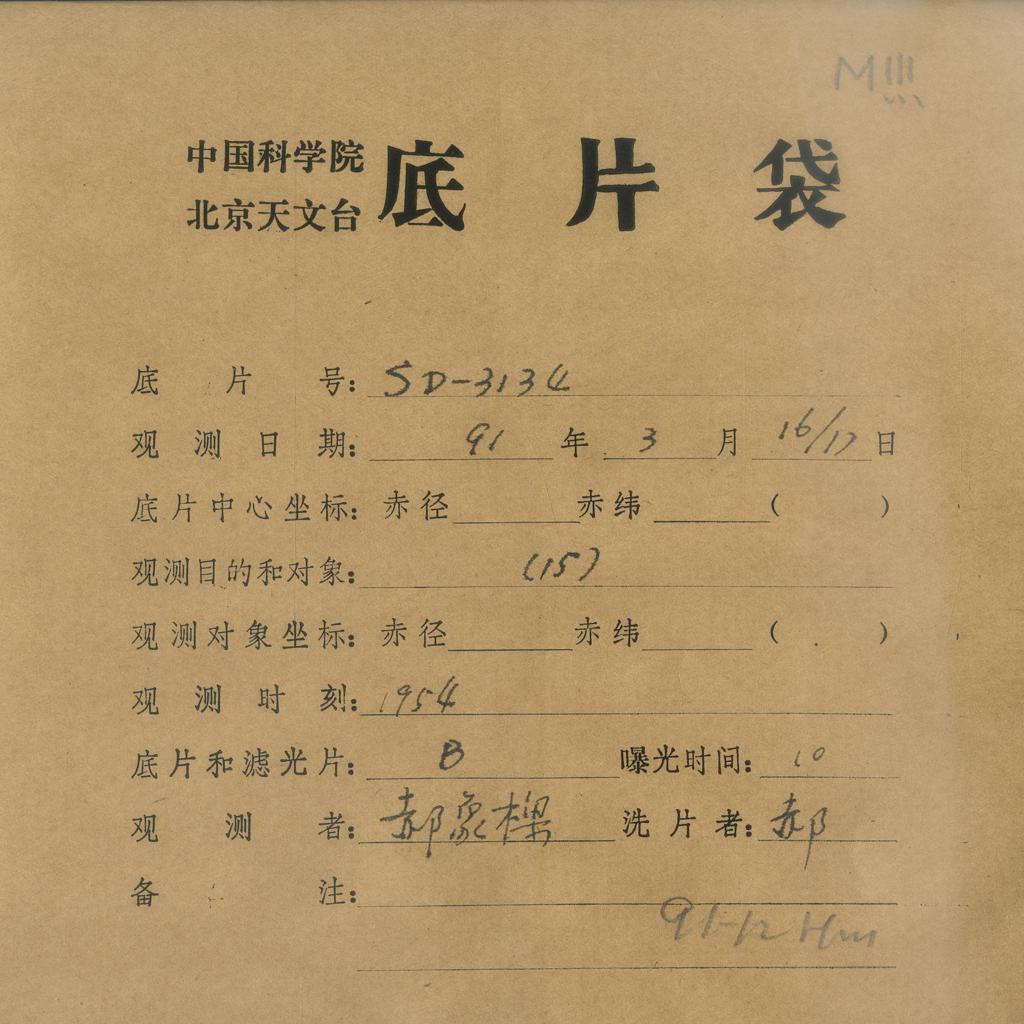 M111
中国科学院
北京天文台
底片袋
底片号: SD-3134
观测日期: 91年 3月 16/17日
底片中心坐标: 赤径 赤纬 ( )
观测目的和对象: (15)
观测对象坐标: 赤径 赤纬 ( )
观测时刻: 1954
底片和滤光片: B 曝光时间: 10
观测者: 郝象樑 洗片者: 郝
备注:
91-12